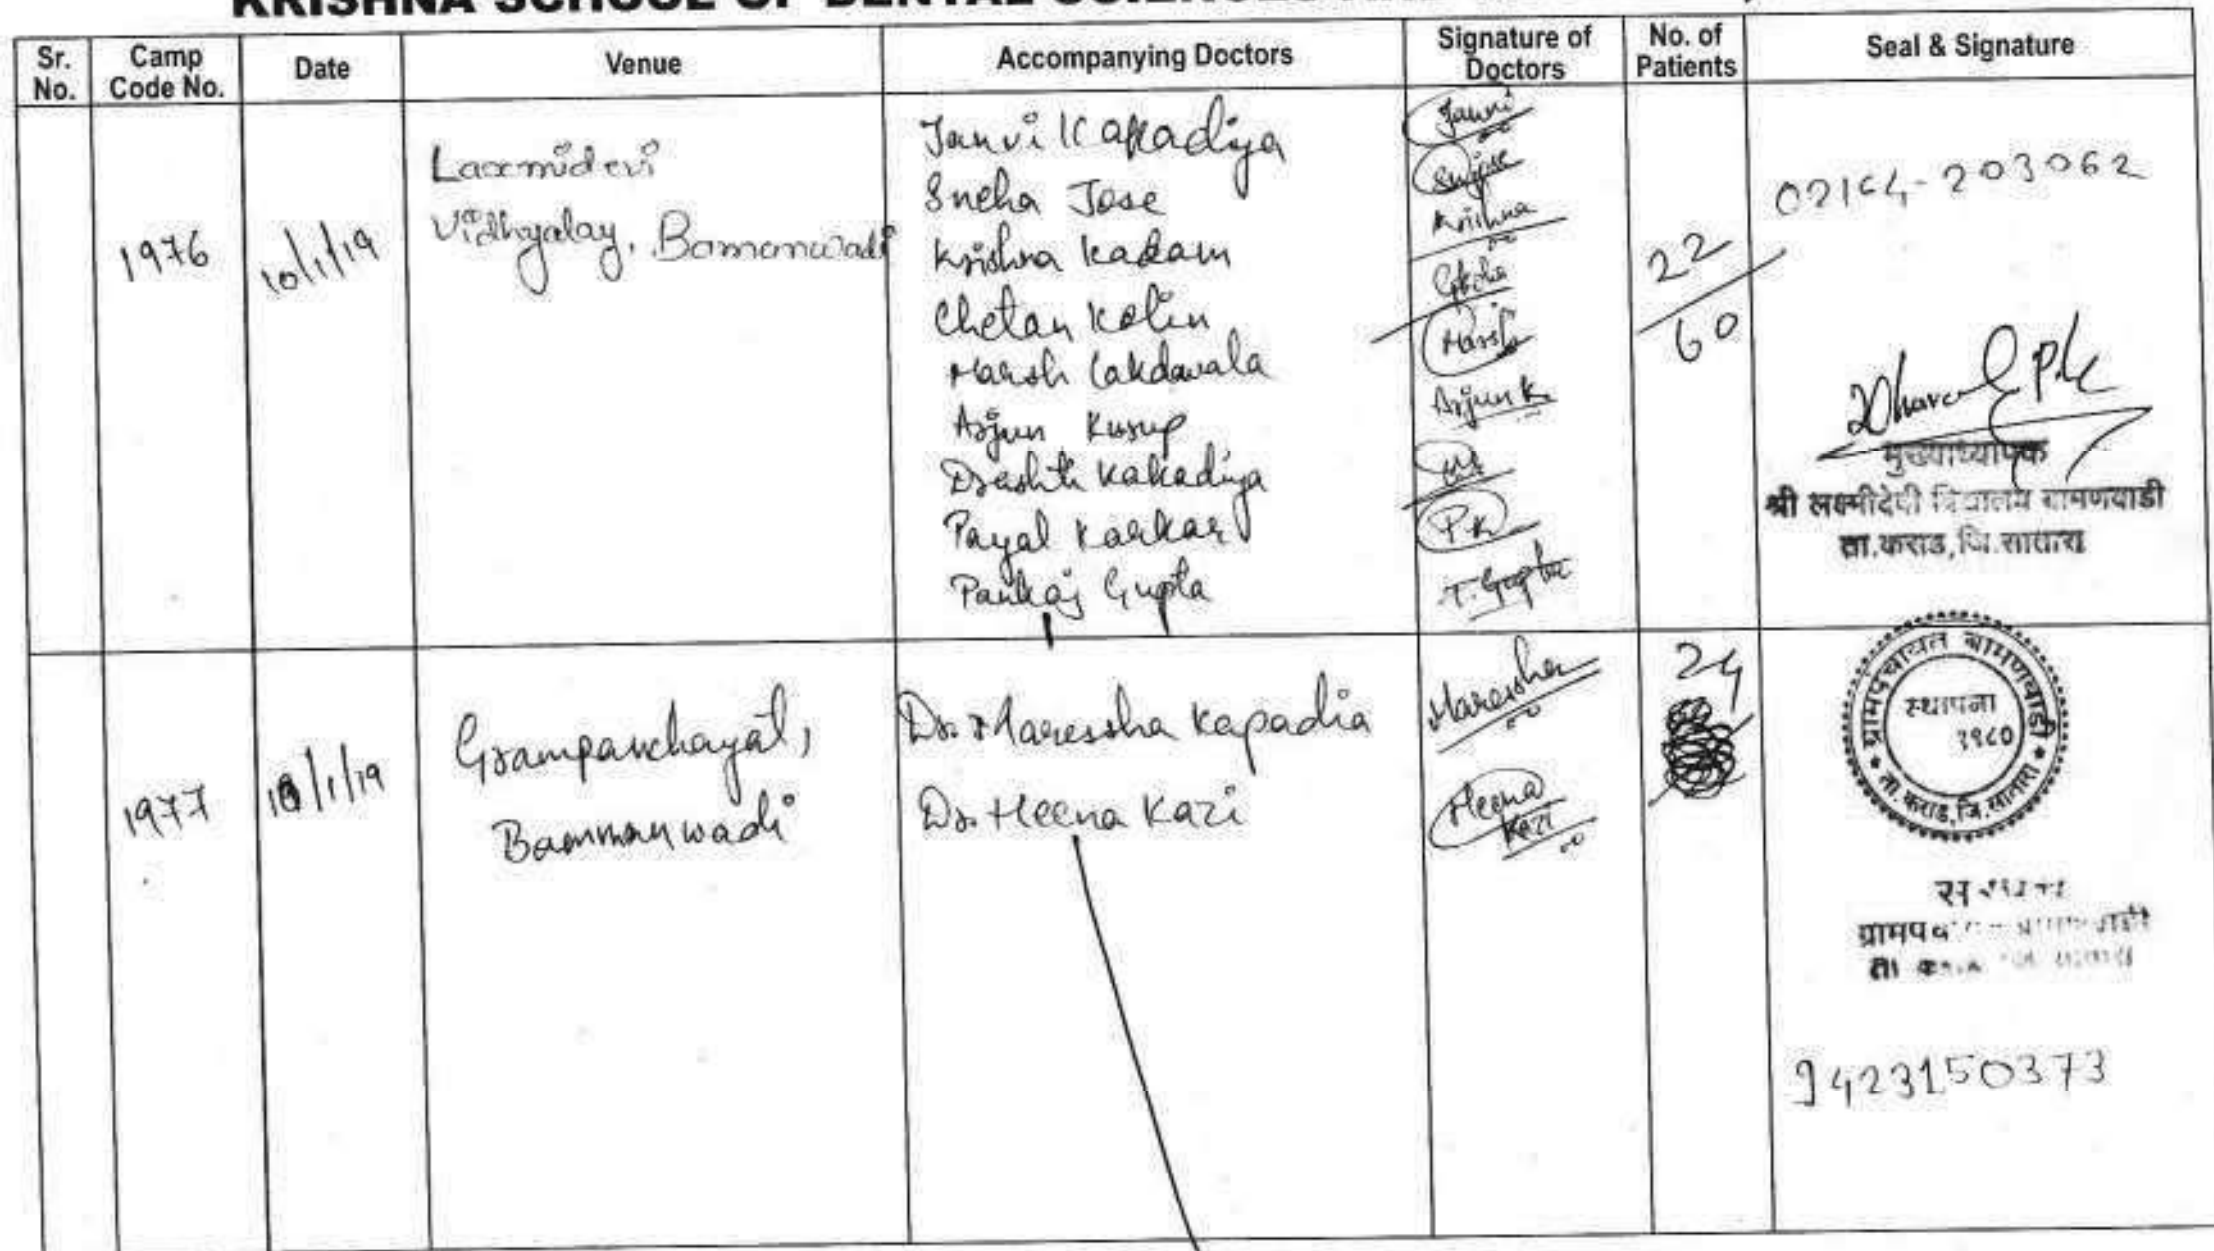 KRISHNA SCHOOL OF DENTAL SCIENCES
Sr. No.
Camp Code No.
Date
Venue
Accompanying Doctors
Signature of Doctors
No. of Patients
Seal & Signature
1976
10/1/19
Laxmidevi
Vidhyalay, Bamanwadi
Janvi Kakadiya
Sneha Jose
Krishna Kadam
Chetan
Harsh Lakdawala
Arjun Kurup
Drashti Kakadiya
Payal Karkar
Pankaj Gupta
Janvi
Krishna
Harsh
Arjun K.
P.K
T. Gupta
22
60
02164-203062
मुख्याध्यापक
श्री लक्ष्मीदेवी विद्यालय बामणवाडी
ता.कराड,जि.सातारा
1977
10/1/19
Grampanchayat,
Bammanwadi
Dr. Maressha Kapadia
Dr. Heena Kazi
Maressha
Heena
Kazi
24
ग्रामपंचायत बामणवाडी
स्थापना
१९८०
ता. कराड,जि.सातारा
9423150373